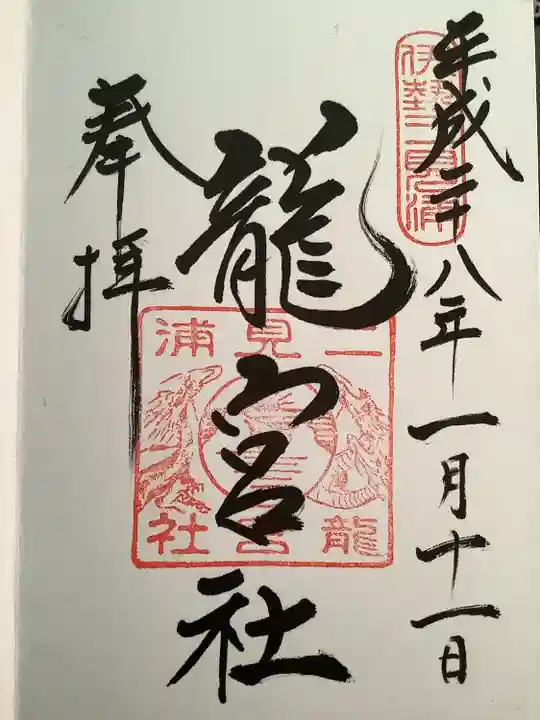 平成二十八年一月十一日
伊勢二見浦
龍宮社
二見浦
龍宮社
奉拝